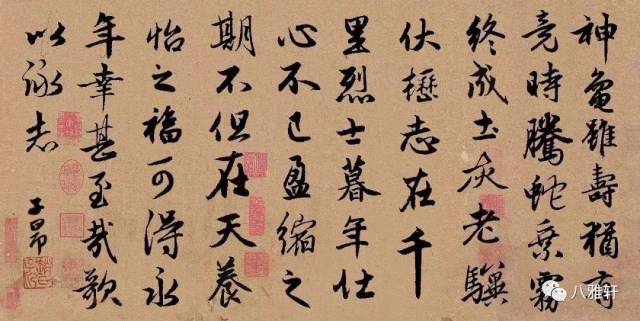 神龜雖壽猶有
竟時騰蛇乗霧
終成土灰老驥
伏櫪志在千
里烈士暮年壮
心不已盈縮之
期不但在天養
怡之福可得永
年幸甚至哉歌
以詠志
子昂
八雅轩